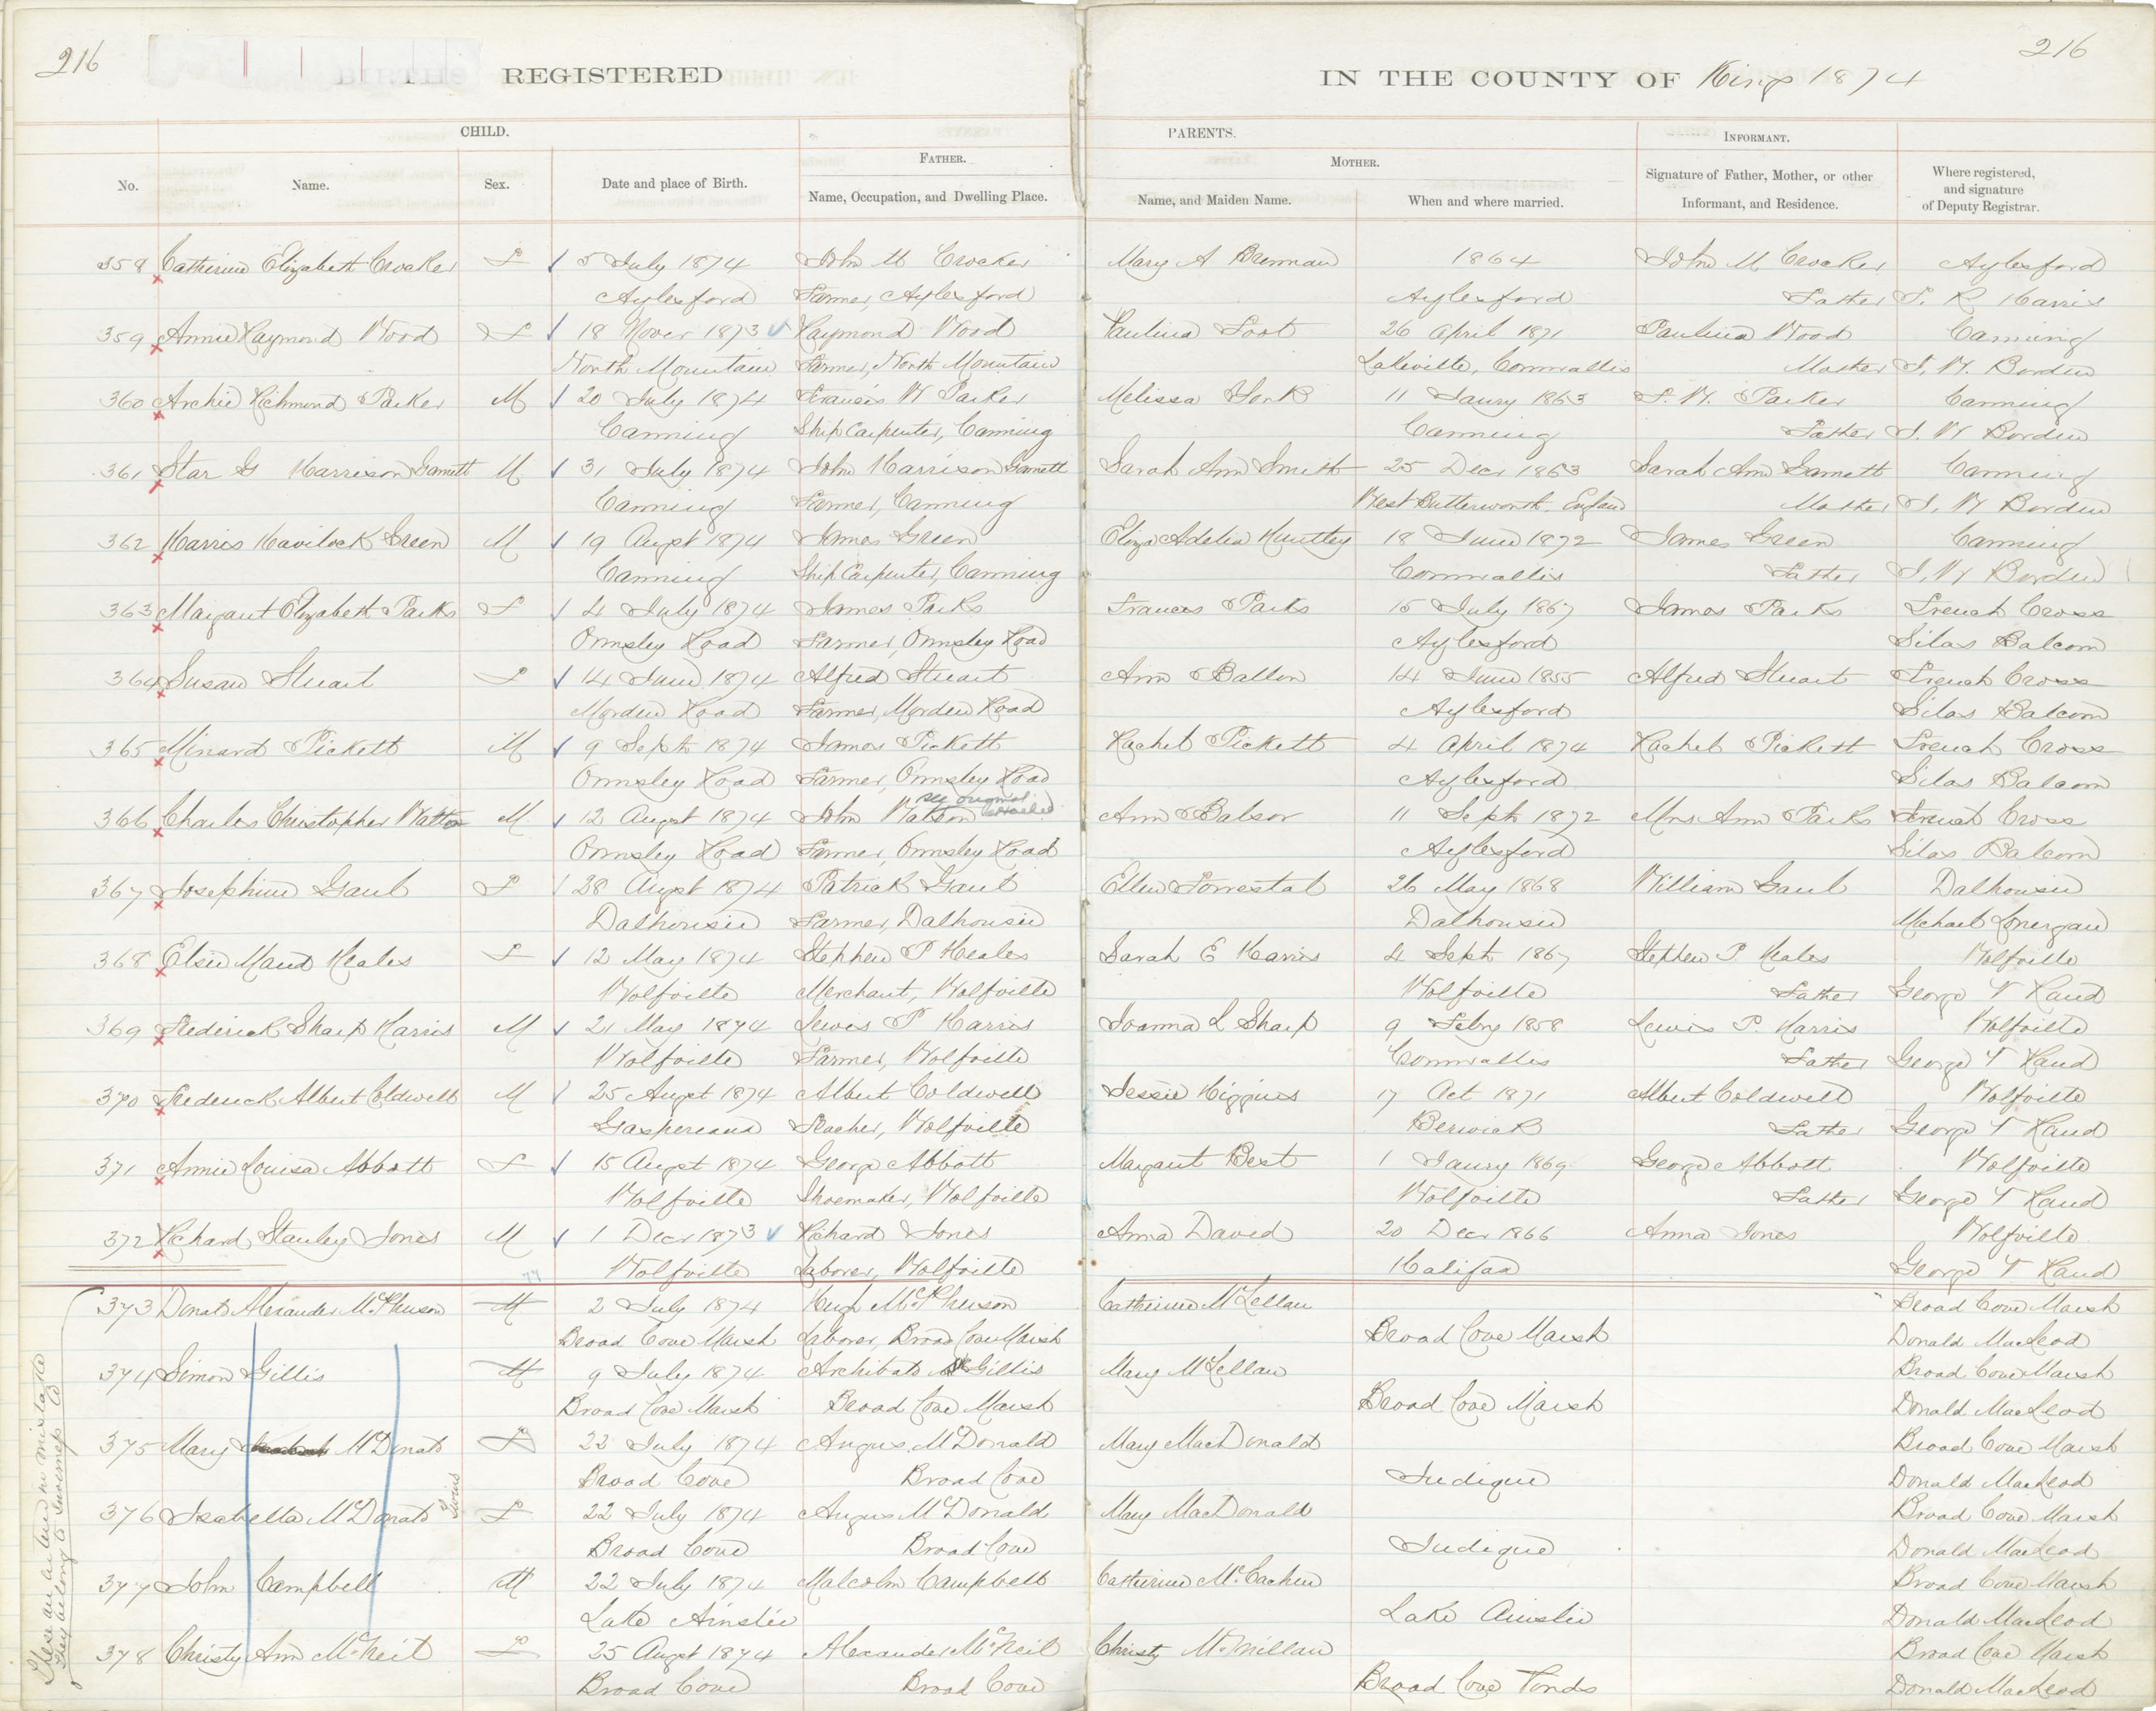 216
216
BIRTHS REGISTERED
IN THE COUNTY OF Kings 1874
CHILD.
PARENTS.
INFORMANT.
FATHER.
MOTHER.
No.
Name.
Sex.
Date and place of Birth.
Name, Occupation, and Dwelling Place.
Name, and Maiden Name.
When and where married.
Signature of Father, Mother, or other
Informant, and Residence.
Where registered,
and signature
of Deputy Registrar.
358 Catherine Elizabeth Crocker F 5 July 1874 John M Crocker Mary A Brennan 1864 John M Crocker Aylesford
Aylesford Farmer, Aylesford Aylesford Father S. R Harris
359 Annie Raymond Wood F 18 Nover 1873 Raymond Wood Paulina Foot 26 April 1871 Paulina Wood Canning
North Mountain Farmer, North Mountain Lakeville, Cornwallis Mother J. W. Borden
360 Archie Richmond Parker M 20 July 1874 Francis W Parker Melissa York 11 Jaury 1863 F. W. Parker Canning
Canning Ship Carpenter, Canning Canning Father J. W Borden
361 Star G Harrison Garnett M 31 July 1874 John Harrison Garnett Sarah Ann Smith 25 Decr 1863 Sarah Ann Garnett Canning
Canning Farmer, Canning West Butterworth. England Mother J. W Borden
362 Harris Havilock Green M 19 Augst 1874 James Green Eliza Adelia Huntley 18 June 1872 James Green Canning
Canning Ship Carpenter, Canning Cornwallis Father J. W Borden
363 Margaret Elizabeth Parks F 4 July 1874 James Parks Frances Parks 15 July 1867 James Parks French Cross
Ormsley Road Farmer, Ormsley Road Aylesford Silas Balcom
364 Susan Stuart F 14 June 1874 Alfred Stuart Ann 14 June 1855 Alfred Stuart French Cross
Morden Road Farmer, Morden Road Aylesford Silas Balcom
365 Minard Pickett M 9 Sept 1874 James Pickett Rachel Pickett 4 April 1874 Rachel Pickett French Cross
Ormsley Road Farmer, Ormsley Road Aylesford Silas Balcom
see original attached
366 Charles Christopher M 12 August 1874 John Watson Ann Balsor 11 Sept 1872 Mrs Ann Parks French Cross
Ormsley Road Farmer, Ormsley Road Aylesford Silas Balcom
367 Josephine Gaul F 28 Augst 1874 Patrick Gaul Ellen Forrestal 26 May 1868 William Gaul Dalhousie
Dalhousie Farmer, Dalhousie Dalhousie Michael Lonergan
368 Elsie Maud Heales F 12 May 1874 Stephen P Heales Sarah E Harris 4 Sept 1867 Stephen P. Heales Wolfville
Wolfville Merchant, Wolfville Wolfville Father George V Rand
369 Frederick Sharp Harris M 21 May 1874 Lewis P Harris Joanna L Sharp 9 Febry 1858 Lewis P. Harris Wolfville
Wolfville Farmer, Wolfville Cornwallis Father George V Rand
370 Frederick Albert Coldwell M 25 Augst 1874 Albert Coldwell Jessie Higgins 17 Oct 1871 Albert Coldwell Wolfville
Gaspereaux Teacher, Wolfville Berwick Father George V Rand
371 Annie Louisa Abbott F 15 Augst 1874 George Abbott Margaret Best 1 Jaury 1869 George Abbott Wolfville
Wolfville Shoemaker, Wolfville Wolfville Father George V Rand
372 Richard Stanley Jones M 1 Decr 1873 Richard Jones Anna David 20 Decr 1866 Anna Jones Wolfville
Wolfville Laborer, Wolfville Halifax George V Rand
These are entered in mistake
They belong to Inverness Co
373 Donald Alexander McPherson M 2 July 1874 Hugh McPherson Catherine McLellan Broad Cove Marsh
Broad Cove Marsh Laborer, Broad Cove Marsh Broad Cove Marsh Donald MacLeod
374 Simon Gillis M 9 July 1874 Archibald Gillis Mary McLellan Broad Cove Marsh
Broad Cove Marsh Broad Cove Marsh Broad Cove Marsh Donald MacLeod
375 Mary McDonald F 22 July 1874 Angus McDonald Mary MacDonald Broad Cove Marsh
Broad Cove Broad Cove Judique Donald MacLeod
Twins
376 Isabella McDonald F 22 July 1874 Angus McDonald Mary MacDonald Broad Cove Marsh
Broad Cove Broad Cove Judique Donald MacLeod
377 John Campbell M 22 July 1874 Malcolm Campbell Catherine McEachen Broad Cove Marsh
Lake Ainslie Lake Ainslie Donald MacLeod
378 Christy Ann McNeil F 25 Augst 1874 Alexander McNeil Christy McMillan Broad Cove Marsh
Broad Cove Broad Cove Broad Cove Ponds Donald MacLeod